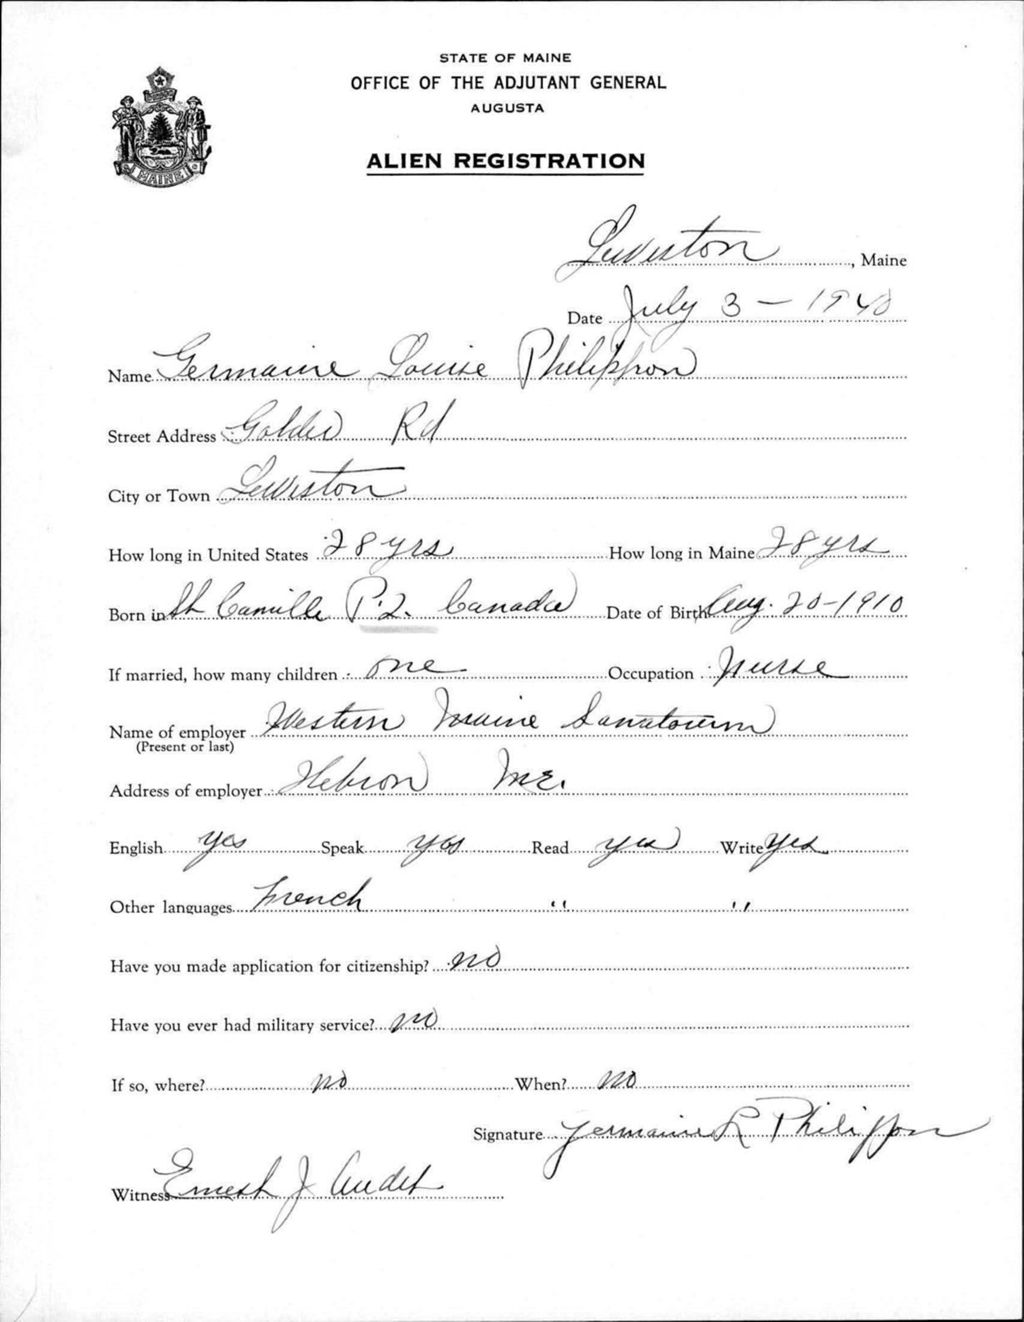 STATE OF MAINE
OFFICE OF THE ADJUTANT GENERAL
AUGUSTA
ALIEN REGISTRATION
MAINE
Lewiston, Maine
Date July 3 - 1940
Name Germaine Louise Philippon
Street Address Rd
City or Town Lewiston
How long in United States 28 yrs How long in Maine 28 yrs
Born in St Camille P.Q. Canada Date of Birth Aug. 20-1910
If married, how many children one Occupation Nurse
Name of employer Western Maine Sanatorium
(Present or last)
Address of employer Hebron Me.
English yes Speak yes Read yes Write yes
Other languages French " "
Have you made application for citizenship? no
Have you ever had military service? no
If so, where? no When? no
Signature Germaine L Philippon
Witness Ernest J Audet